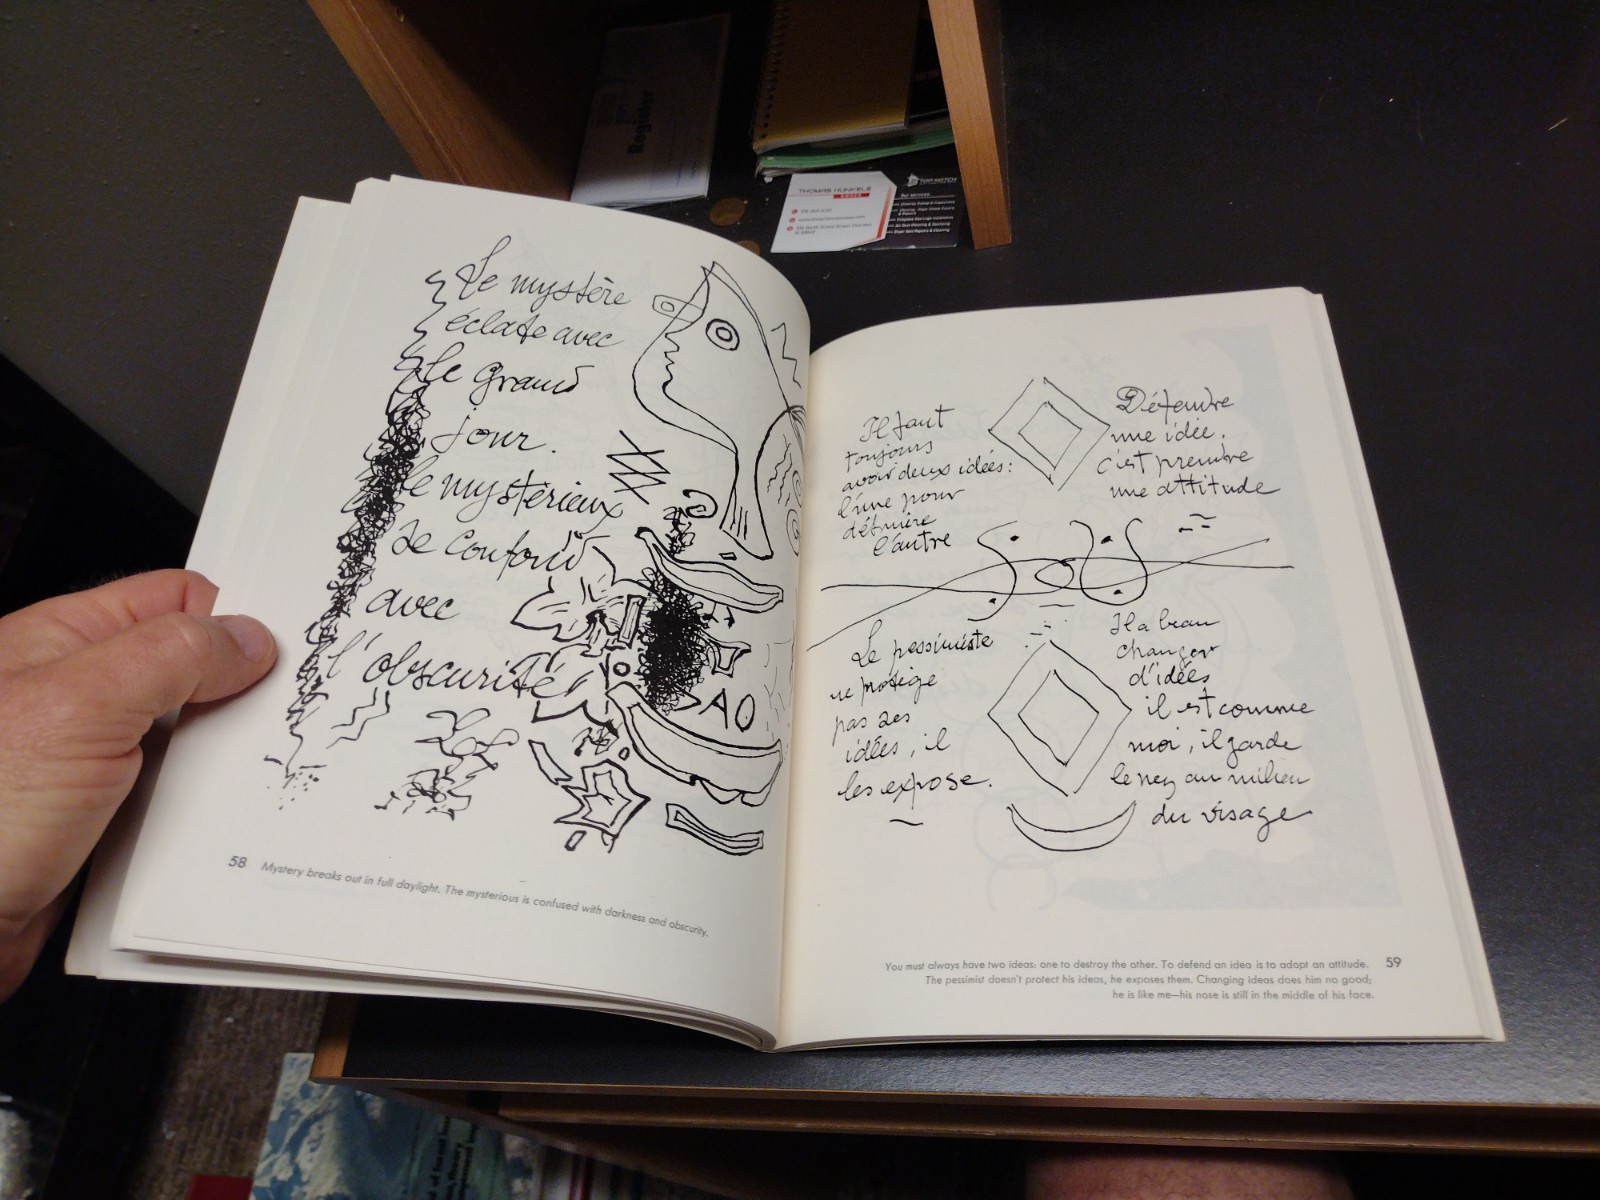 Register
THOMAS HUNKELE
TOP NOTCH
Le mystère
éclate avec
le grand
jour.
le mystérieux
se confond
avec
l'obscurité
AO
58 Mystery breaks out in full daylight. The mysterious is confused with darkness and obscurity.
Il faut
toujours
avoir deux idées:
l'une pour
détruire
l'autre
Défendre
une idée.
c'est prendre
une attitude
Le pessimiste
ne protège
pas ses
idées, il
les expose.
Il a beau
changer
d'idées
il est comme
moi, il garde
le nez au milieu
du visage
You must always have two ideas: one to destroy the other. To defend an idea is to adopt an attitude. 59
The pessimist doesn't protect his ideas, he exposes them. Changing ideas does him no good;
he is like me—his nose is still in the middle of his face.